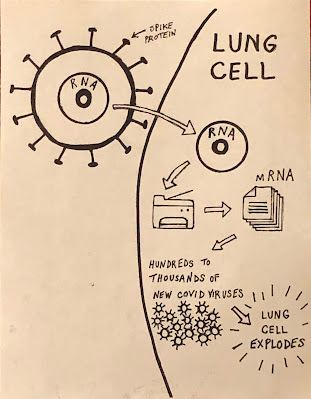 SPIKE
PROTEIN
LUNG
CELL
RNA
RNA
mRNA
HUNDREDS TO
THOUSANDS OF
NEW COVID VIRUSES
LUNG
CELL
EXPLODES